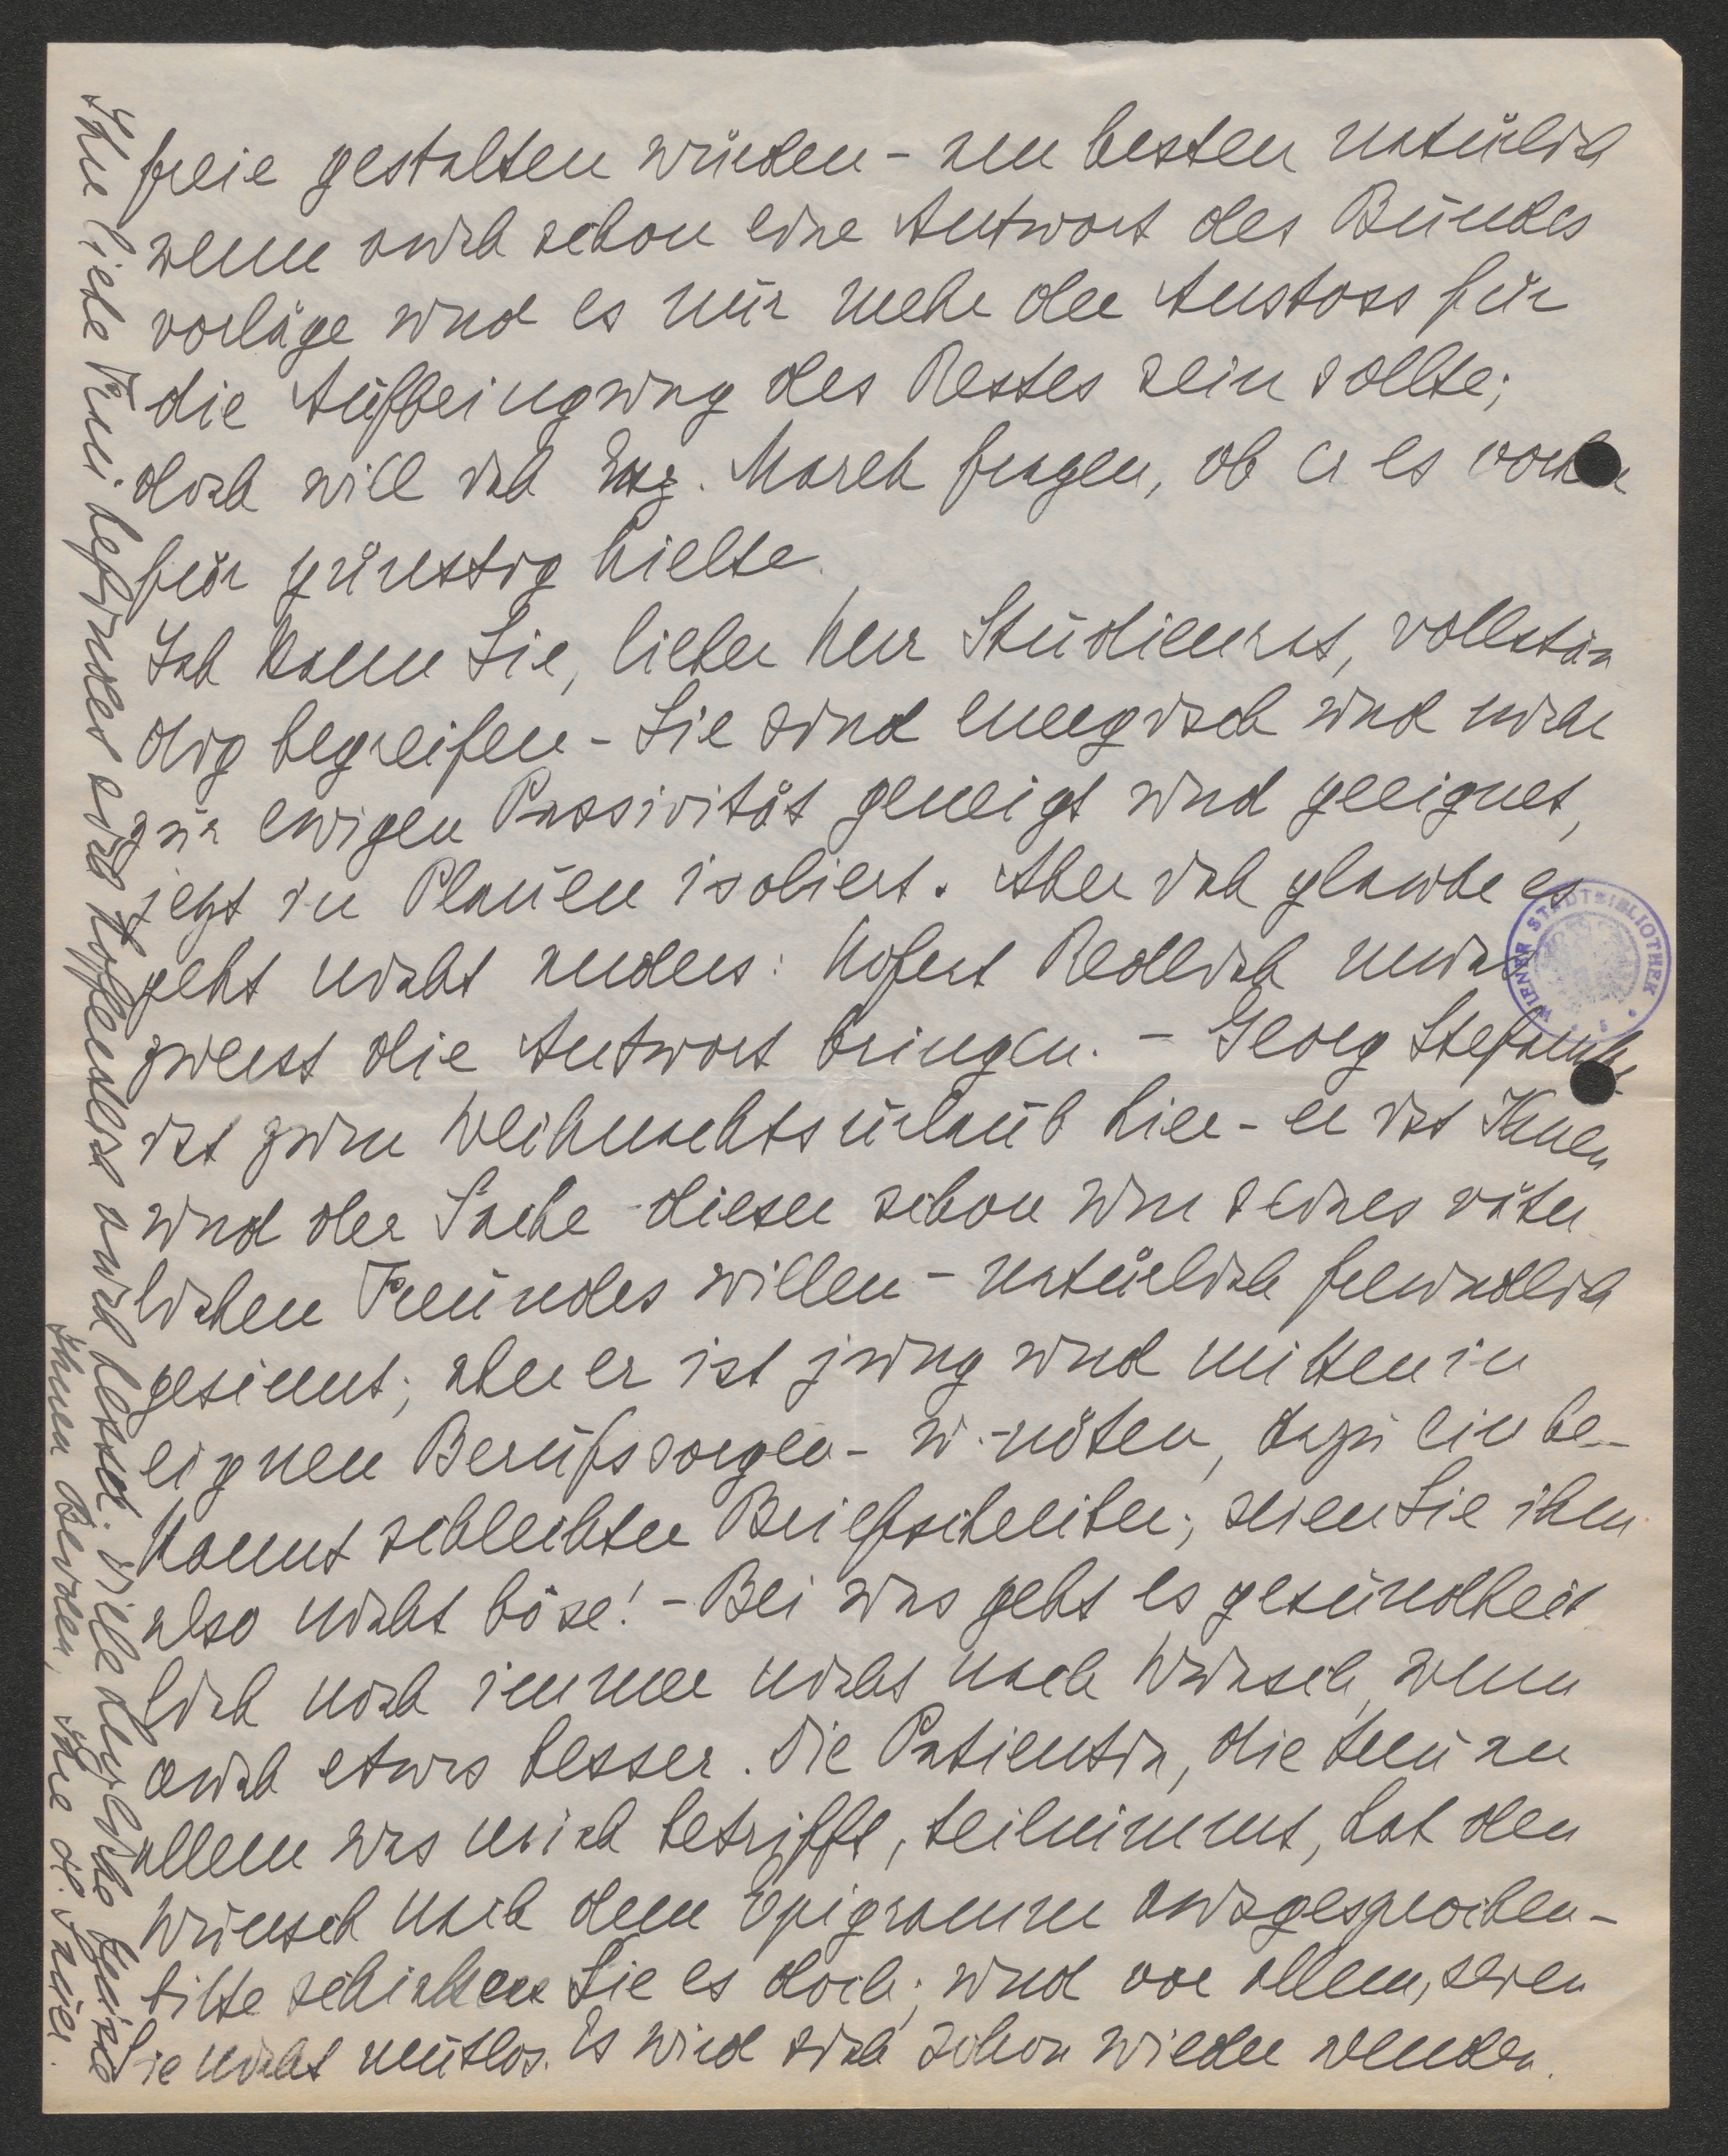 freie gestalten würden - am besten natürlich
wenn auch schon eine Antwort des Bundes
vorläge und es nur mehr der Anstoss für
die Aufbringung des Restes sein sollte;
doch will ich Exz. March fragen, ob er es vorher
für günstig hielte.
Ich kann Sie, lieber Herr Studienrat, vollstän
dig begreifen - Sie sind energisch und nicht
zur ewigen Passivität geneigt und geeignet,
jetzt in Plauen isoliert. Aber ich glaube es
geht nicht anders: Hofrat Redlich muss
zuerst die Antwort bringen. - Georg Stefansky
ist zum Weihnachtsurlaub hier - er ist Ihnen
und der Sache dieser schon um seines väter
lichen Freundes willen - natürlich freundlich
gesinnt; aber er ist jung und mitten in
eignen Berufssorgen - u. -nöten, dazu ein be-
kannt schlechter Briefschreiber; seien Sie ihm
also nicht böse! - Bei uns geht es gesundheit
lich noch immer nicht nach Wunsch, wenn
auch etwas besser. Die Patientin, die treu an
allem was mich betrifft, teilnimmt, hat den
Wunsch nach dem Epigramm ausgesprochen -
bitte schicken Sie es doch; und vor allem, seien
Sie nicht mutlos. Es wird sich schon wieder wenden.
Ihre liebe Frau befindet sich hoffentlich auch besser. Viele herzliche Grüsse
Ihnen Beiden, Ihre A. Sauer.
WIENER STADTBIBLIOTHEK